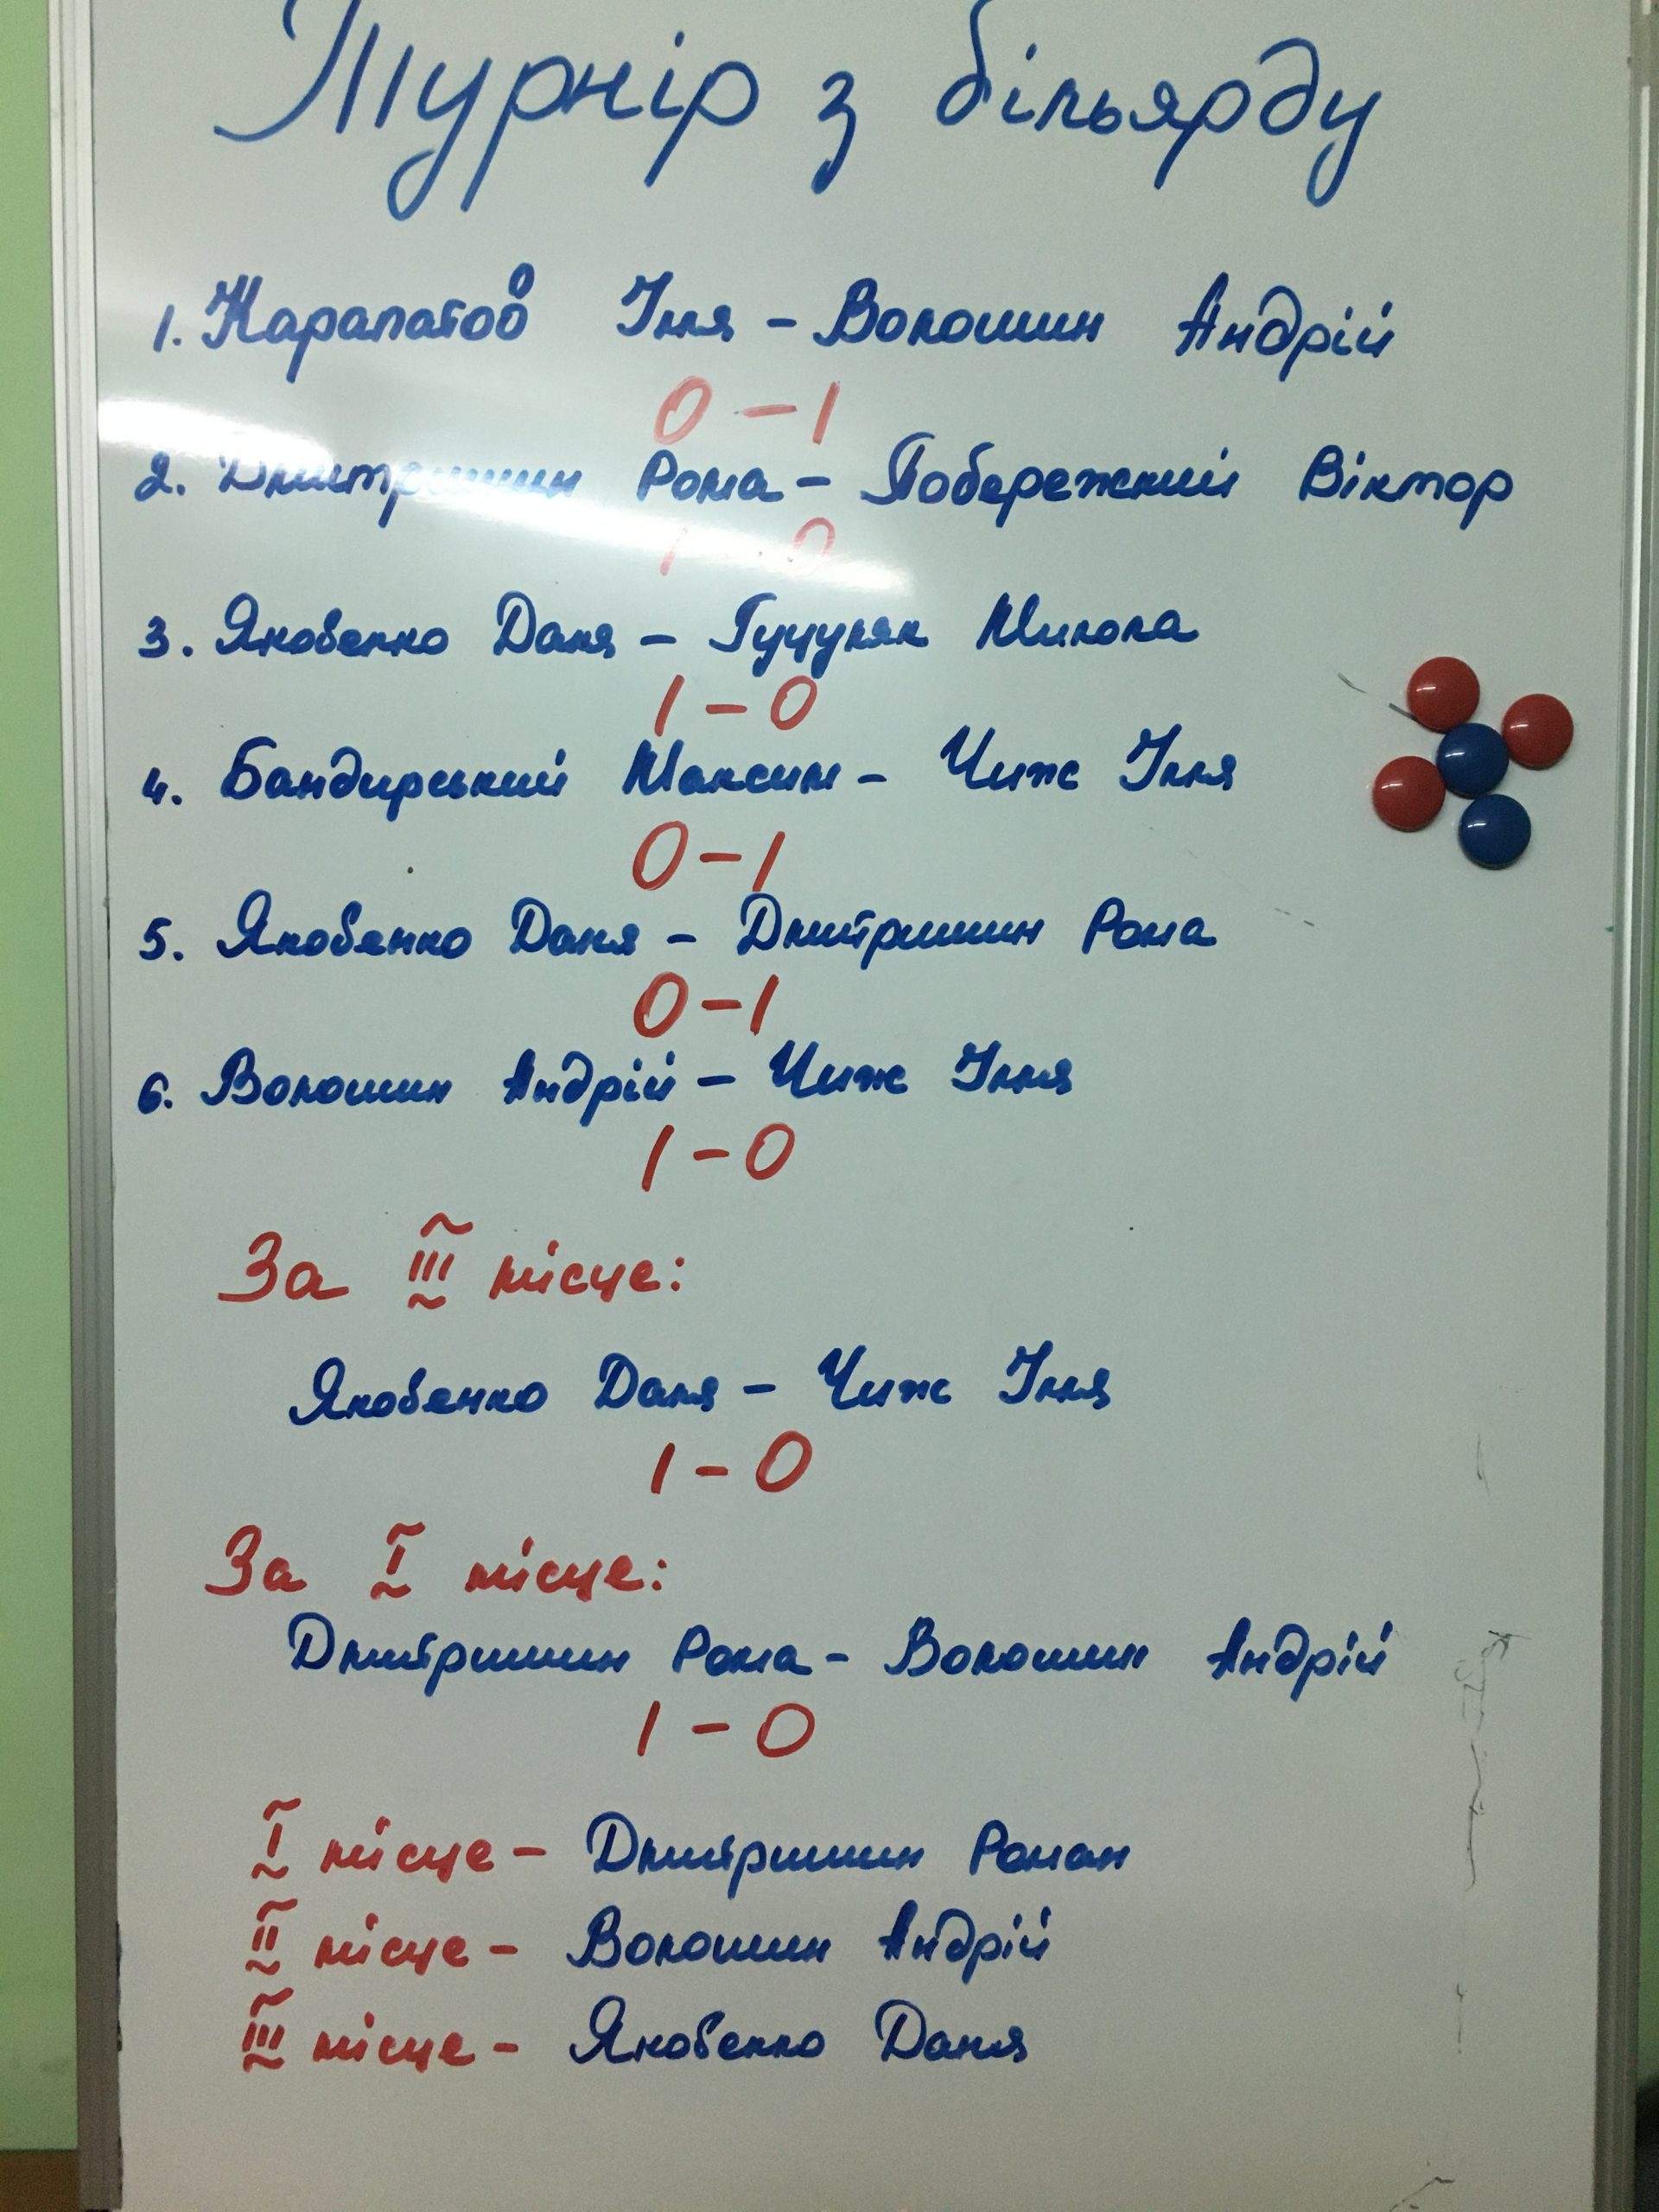 Турнір з більярду
1. Карапатов Ілля - Волошин Андрій
0 - 1
2. Дмитришин Рома - Побережний Віктор
1 - 0
3. Яковенко Даня - Гуцуляк Микола
1 - 0
4. Бандирський Максим - Чиж Ілля
0 - 1
5. Яковенко Даня - Дмитришин Рома
0 - 1
6. Волошин Андрій - Чиж Ілля
1 - 0
За III місце:
Яковенко Даня - Чиж Ілля
1 - 0
За I місце:
Дмитришин Рома - Волошин Андрій
1 - 0
I місце - Дмитришин Роман
II місце - Волошин Андрій
III місце - Яковенко Даня